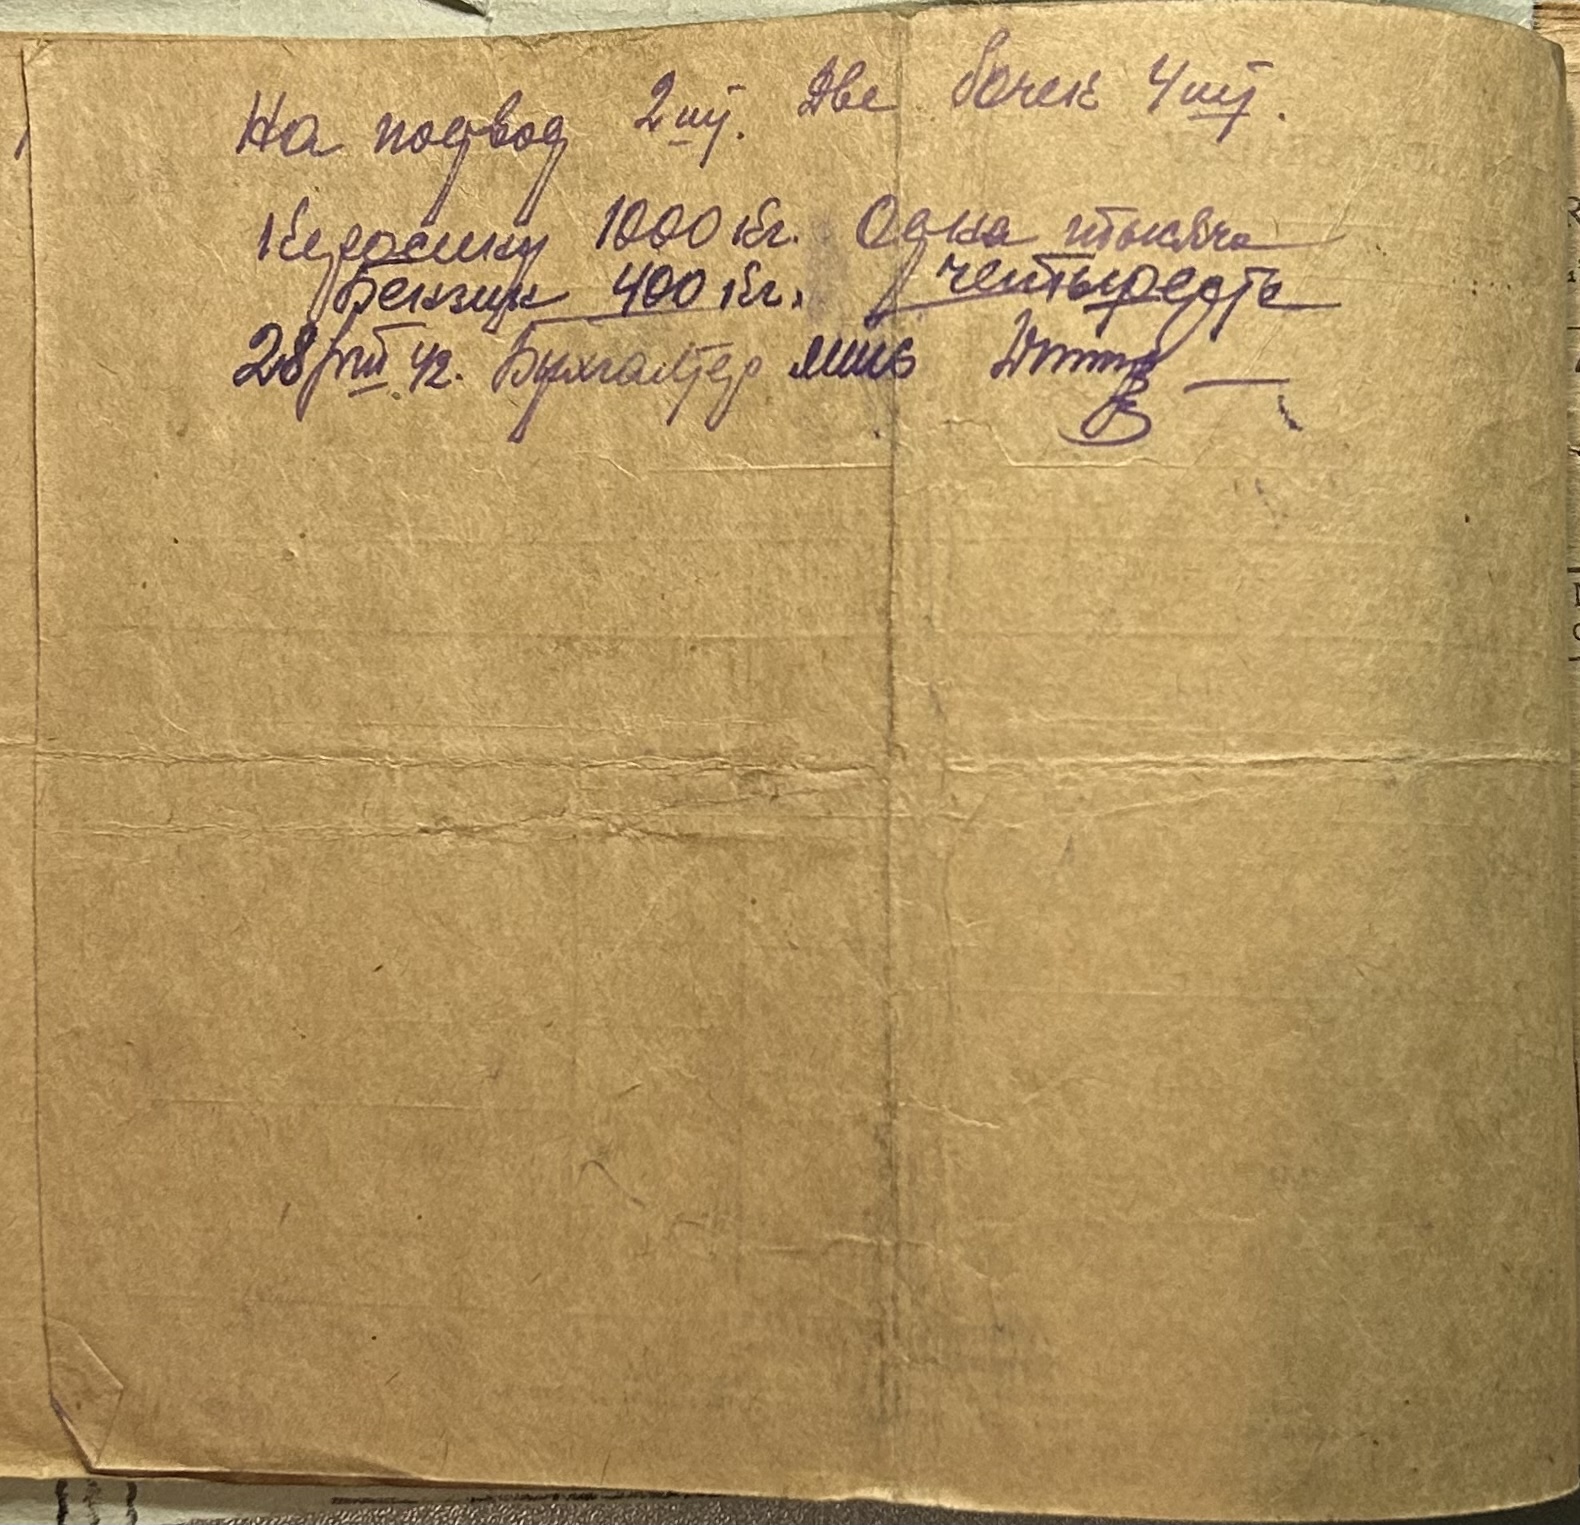 На подвод 2 шт. Две бочек 4 шт.
Керосину 1000 кг. Одна тысяча
Бензин 400 кг. четыреста
28/VIII 42. Бухгалтер